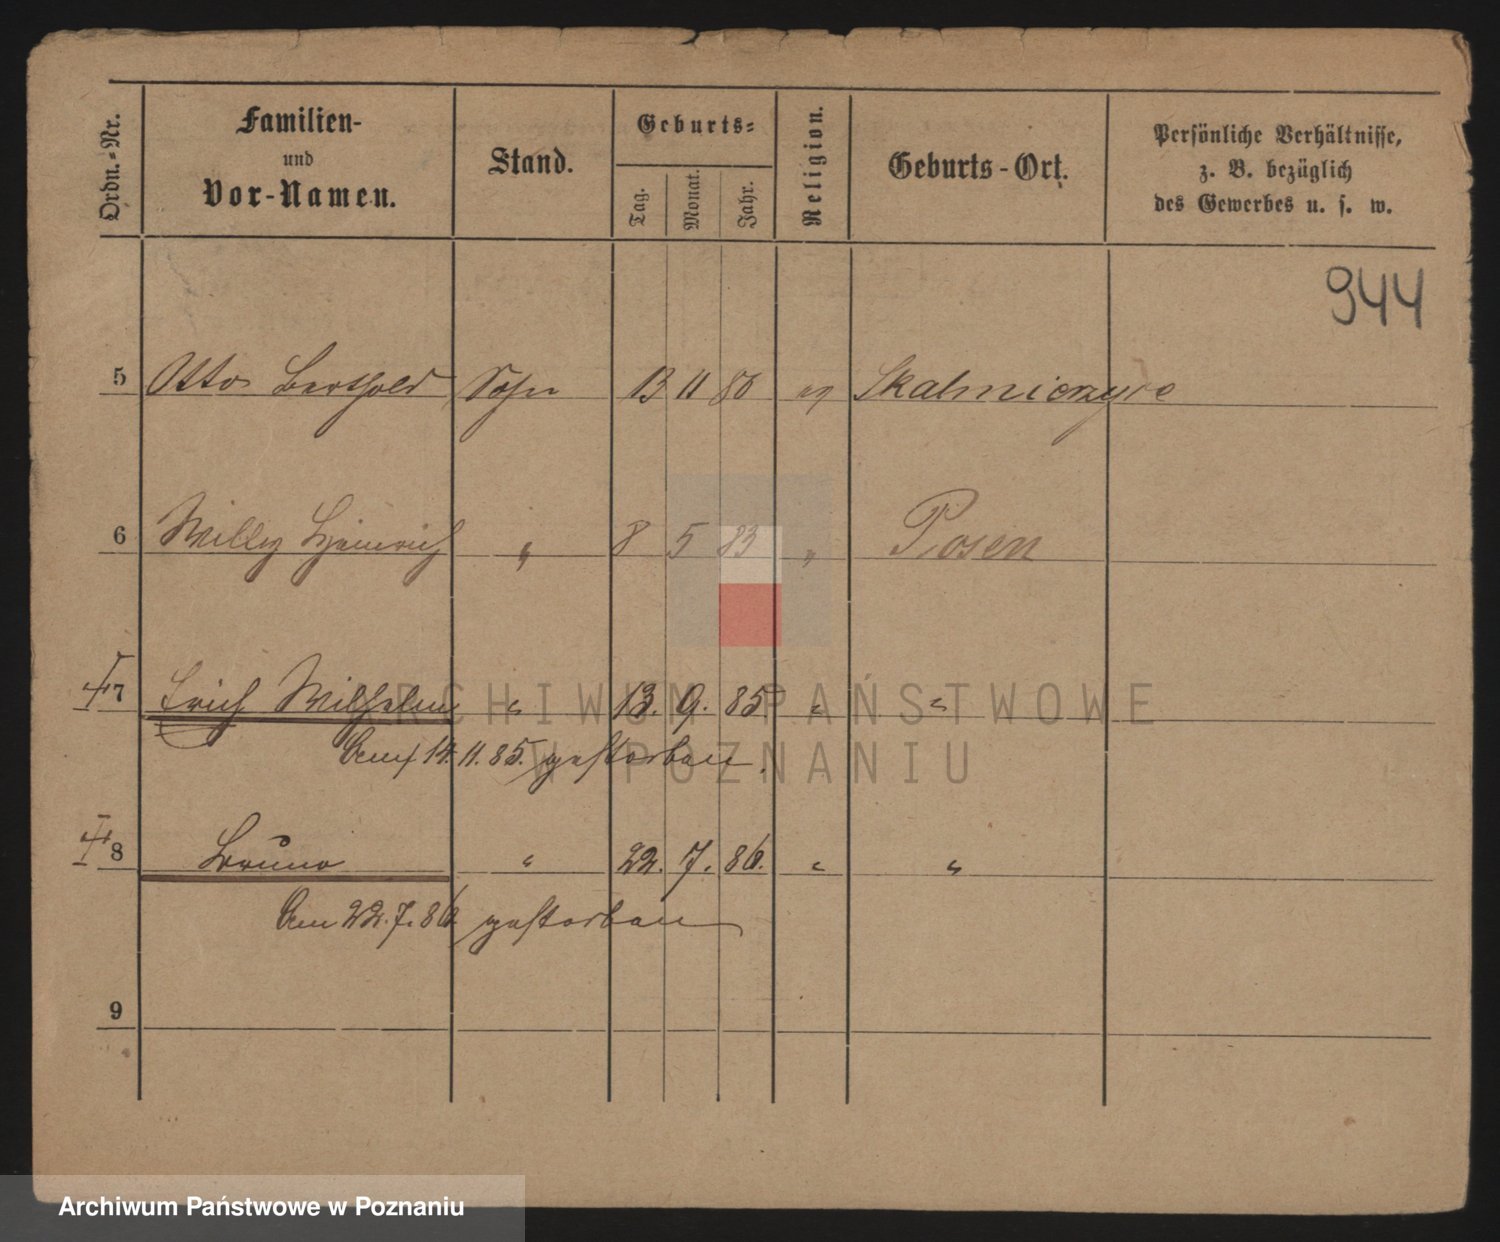 Ordn.-Nr.
Familien-
und
Vor-Namen.
Stand.
Geburts-
Tag.
Monat.
Jahr.
Religion.
Geburts-Ort.
Persönliche Verhältnisse,
z. B. bezüglich
des Gewerbes u. s. w.
944
5 Otto Berthold Sohn 13 11 80 ev
6 Willy Heinrich " 8 5 83 " Posen
7 Erich Wilhelm " 13. 9. 85. " "
Am 14. 11. 85. gestorben.
8 Bruno " 22. 7. 86. " "
Am 22. 7. 86 gestorben
9
ARCHIWUM PAŃSTWOWE
W POZNANIU
Archiwum Państwowe w Poznaniu